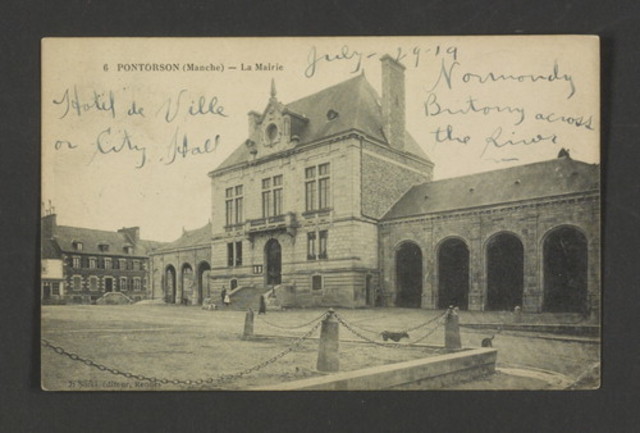 6 PONTORSON (Manche) — La Mairie
July - 29-19
Hotel de Ville
or City Hall
Normandy
Britony across
the River